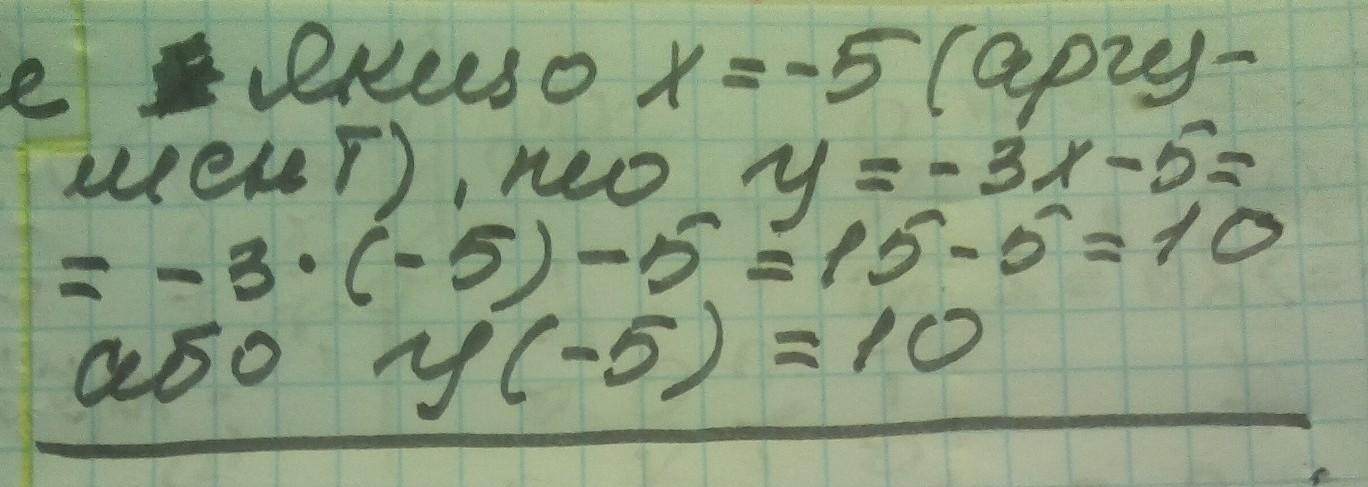 е Якщо x = -5 (аргу-
мент), то y = -3x - 5 =
= -3 · (-5) - 5 = 15 - 5 = 10
або y(-5) = 10